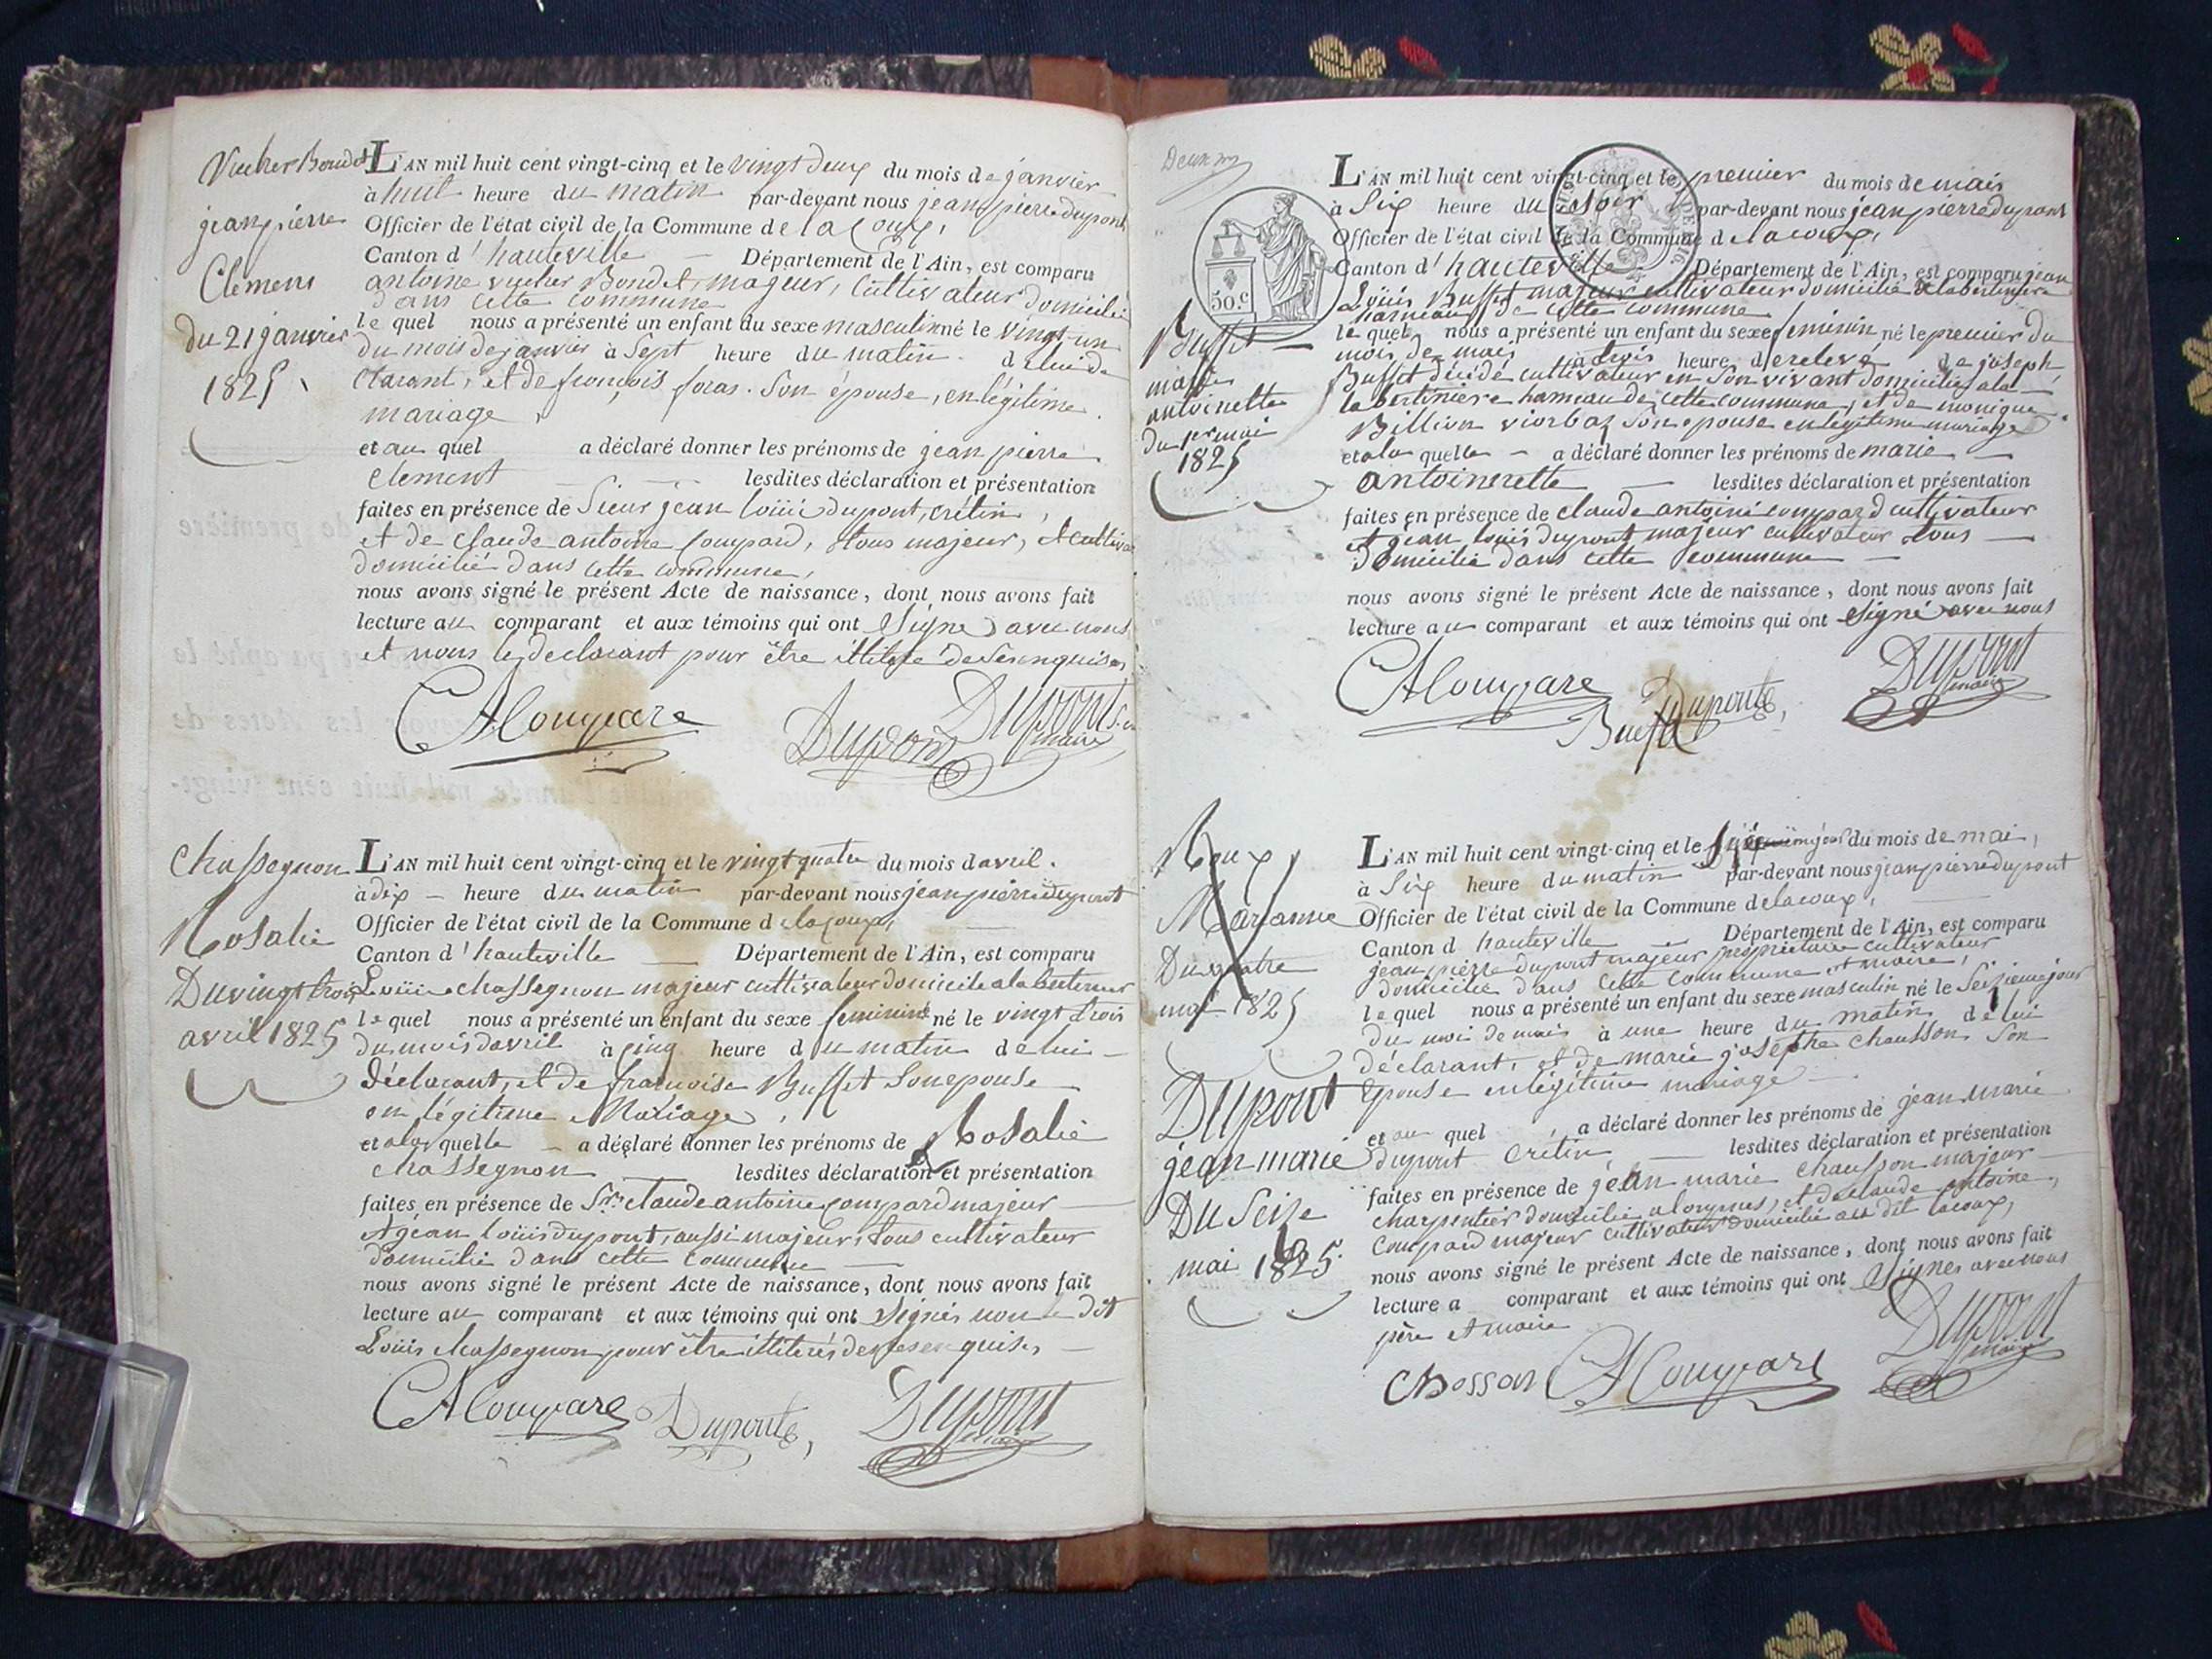 Vucher Boudet
jean pierre
Clemens
du 21 janvier
1825
L'AN mil huit cent vingt-cinq et le vingt deux du mois de janvier
à huit heure du matin par-devant nous jean pierre dupont
Officier de l'état civil de la Commune de la Coux,
Canton d'hauteville — Département de l'Ain, est comparu
antoine vucher Boudet, majeur, Cultivateur domicilié
dans cette commune
le quel nous a présenté un enfant du sexe masculin né le vingt-un
du mois de janvier à Sept heure du matin de lui de
clarant, et de françois foras son épouse, en légitime
mariage
et au quel a déclaré donner les prénoms de jean pierre
clement lesdites déclaration et présentation
faites en présence de Sieur jean loüis dupont, crétin,
et de claude antoine Compard, tous majeur, et cultiva
domicilié dans cette commune,
nous avons signé le présent Acte de naissance, dont nous avons fait
lecture au comparant et aux témoins qui ont Signé avec nous
et nous le declarant pour être illiteré de Ses enquises
CA Compare Dupont Dupont maire
Chassegnon
Rosalie
Du vingt trois
avril 1825
L'AN mil huit cent vingt-cinq et le vingt quatre du mois davril.
à dix — heure du matin par-devant nous jean pierre dupont
Officier de l'état civil de la Commune d elacoux,
Canton d'hauteville — Département de l'Ain, est comparu
Loüis chassegnon majeur cultivateur domicilie
le quel nous a présenté un enfant du sexe feminin né le vingt trois
du mois davril à cinq heure du matin de lui —
déclarant, et de françoise Buffet son epouse
en légitime Mariage,
et a la quelle — a déclaré donner les prénoms de Rosalie
chassegnon lesdites déclaration et présentation
faites en présence de Sr. claude antoine compard majeur —
et jean loüis dupont, aussi majeur, tous cultivateur
domicilié dans cette commune —
nous avons signé le présent Acte de naissance, dont nous avons fait
lecture au comparant et aux témoins qui ont signés non le dit
Loüis chassegnon pour être illiterés de ses enquises —
CA Compare Duponte, Dupont maire
Deux
50.c
Buffet —
marie
antoinette
du 1er mai
1825
L'AN mil huit cent vingt-cinq et le premier du mois de mais
à Six heure du Soir par-devant nous jean pierre dupont
Officier de l'état civil de la Commune d elacoux,
Canton d'hauteville Département de l'Ain, est comparu jean
Loüis Buffet majeur cultivateur domicilié a labertiniere
hameau de cette commune
le quel nous a présenté un enfant du sexe feminin né le premier du
mois de mais à trois heure de joseph
Buffet décidé cultivateur en Son vivant domicilié ala
labertiniere hameau de cette commune, et de monique
Billion viorbaz Son epouse en legitime mariage
et a la quelle — a déclaré donner les prénoms de marie —
antoinerette — lesdites déclaration et présentation
faites en présence de claude antoine compard cultivateur
et jean louis dupont majeur cultivateur tous —
domicilié dans cette commune —
nous avons signé le présent Acte de naissance, dont nous avons fait
lecture au comparant et aux témoins qui ont Signé avec nous
CA Compare Duponte, Dupont maire
Buffet
Roux
Marianne
Du quatre
mai 1825
Dupont
jean marie
Du Seize
mai 1825.
L'AN mil huit cent vingt-cinq et le du mois de mai,
à Six heure du matin par-devant nous jean pierre dupont
Officier de l'état civil de la Commune d elacoux,
Canton d hauteville — Département de l'Ain, est comparu
jean pierre dupont majeur propriétaire cultivateur
domicilié dans cette commune et maire,
le quel nous a présenté un enfant du sexe masculin né le Seizieme jour
du moi de mais à une heure du matin de lui
déclarant, et de marie josephe chausson Son
epouse en légitime mariage —
et au quel, a déclaré donner les prénoms de jean marie
dupont crétin — lesdites déclaration et présentation
faites en présence de jean marie chausson majeur
charpentier domicilié a longnes, et de claude antoine,
Compard majeur cultivateur domicilié au dit lacoux,
nous avons signé le présent Acte de naissance, dont nous avons fait
lecture a comparant et aux témoins qui ont Signés avec nous
père et maire
Chosson CA Compare Dupont maire